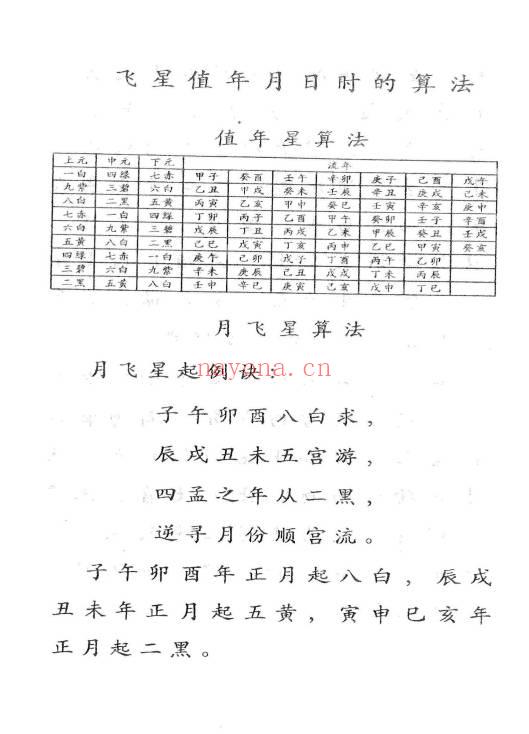 飞星值年月日时的算法
值年星算法
上元 中元 下元 流年
一白 四緑 七赤 甲子 癸酉 壬午 辛卯 庚子 己酉 戊午
九紫 三碧 六白 乙丑 甲戌 癸未 壬辰 辛丑 庚戌 己未
八白 二黑 五黄 丙寅 乙亥 甲申 癸巳 壬寅 辛亥 庚申
七赤 一白 四緑 丁卯 丙子 乙酉 甲午 癸卯 壬子 辛酉
六白 九紫 三碧 戊辰 丁丑 丙戌 乙未 甲辰 癸丑 壬戌
五黄 八白 二黑 己巳 戊寅 丁亥 丙申 乙巳 甲寅 癸亥
四緑 七赤 一白 庚午 己卯 戊子 丁酉 丙午 乙卯
三碧 六白 九紫 辛未 庚辰 己丑 戊戌 丁未 丙辰
二黑 五黄 八白 壬申 辛巳 庚寅 己亥 戊申 丁巳
月飞星算法
月飞星起例诀：
nayona.cn
子午卯酉八白求，
辰戌丑未五宫游，
四孟之年从二黑，
逆寻月份顺宫流。
子午卯酉年正月起八白，辰戌
丑未年正月起五黄，寅申巳亥年
正月起二黑。